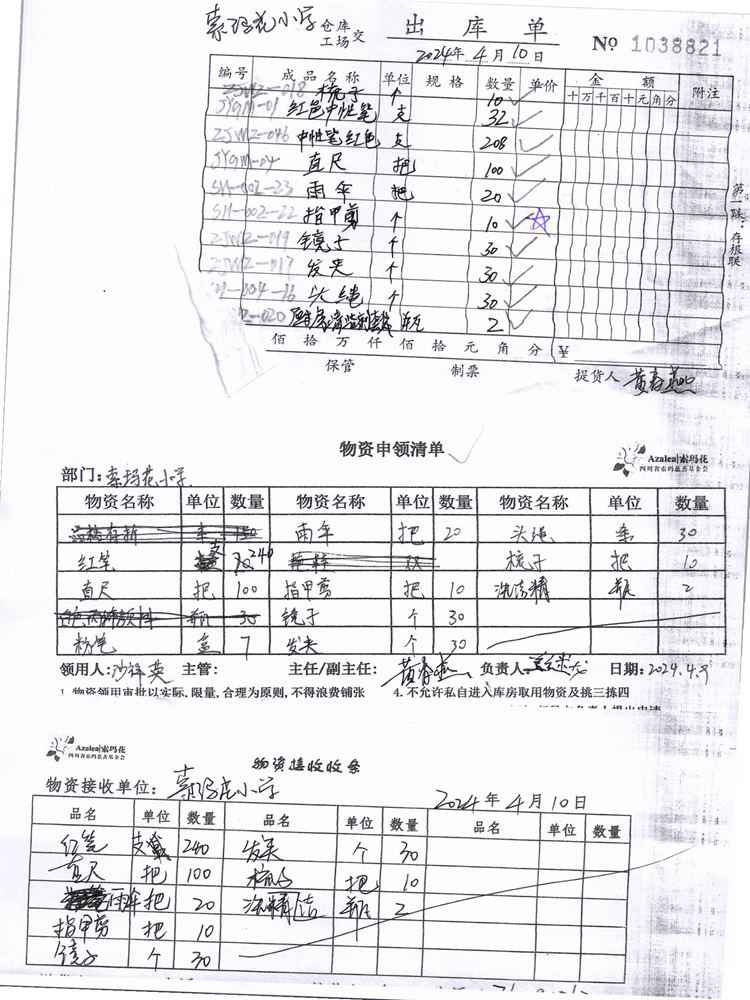 索玛花小学 仓库 工场 交 出库单 № 1038821
2024年4月10日
编号 成品名称 单位 规格 数量 单价 金额 附注
十万千百十元角分
梳子 个 10
JYGM-01 红色中性笔 支 32
ZJWZ-046 中性笔红色 支 208
JYGM-04 直尺 把 100
SH-002-23 雨伞 把 20
SH-002-22 指甲剪 个 10
ZJWZ-019 镜子 个 30
ZJWZ-017 发夹 个 30
-004-16 头绳 个 30
-020 瓶 2
佰拾万仟佰拾元角分 ¥
保管 制票 提货人 黄春燕
第一联:存根联
物资申领清单
Azalea|索玛花
四川省索玛慈善基金会
部门:索玛花小学
物资名称 单位 数量 物资名称 单位 数量 物资名称 单位 数量
雨伞 把 20 头绳 30
红笔 支 240 梳子 把 10
直尺 把 100 指甲剪 把 10 洗洁精 瓶 2
镜子 个 30
粉笔 盒 7 发夹 个 30
领用人: 主管: 主任/副主任: 黄春燕 负责人: 日期: 2024.4.9
1. 物资领用审批以实际、限量,合理为原则,不得浪费铺张 4. 不允许私自进入库房取用物资及挑三拣四
Azalea|索玛花
四川省索玛慈善基金会
物资接收收条
物资接收单位: 索玛花小学 2024年4月10日
品名 单位 数量 品名 单位 数量 品名 单位 数量
红笔 支 240 发夹 个 30
直尺 把 100 梳子 把 10
雨伞 把 20 洗精洁 瓶 2
指甲剪 把 10
镜子 个 30